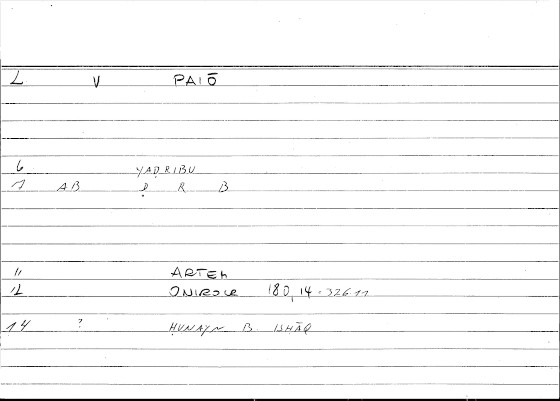 L V PAIŌ
6 YAḌRIBU
7 AB Ḍ R B
11 ARTEM
12 ONIROCR 180,14-326 11
14 ? ḤUNAYN B. ISḤĀQ